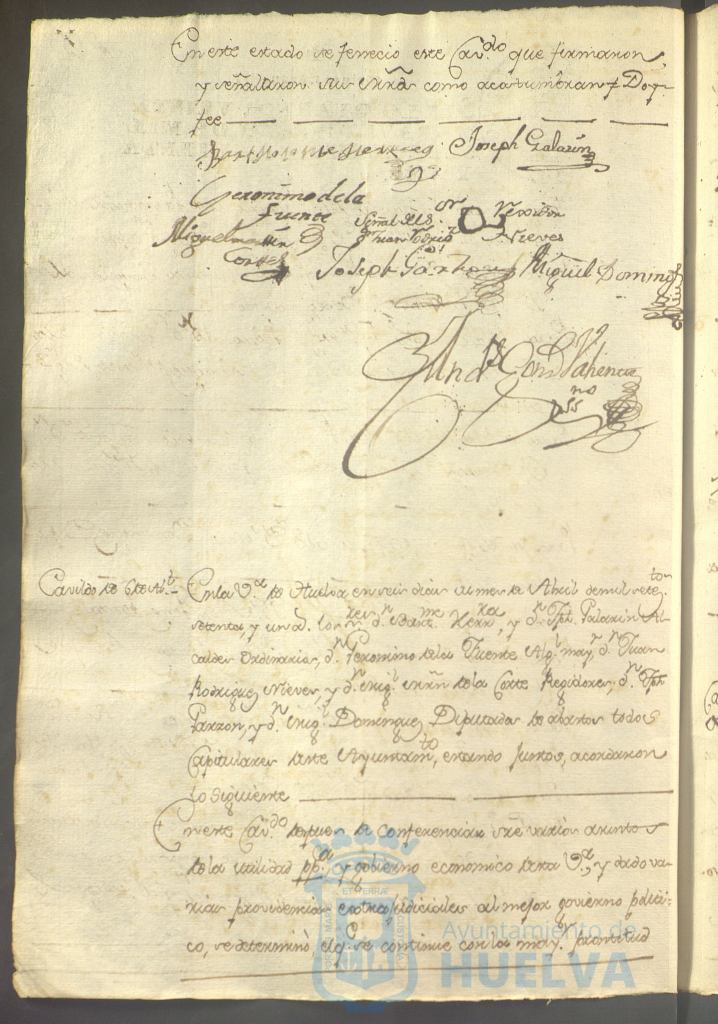 En este estado se fenecio este Cav.do que firmaron,
y señalaron sus mrds como acostumbran, Doy
fee
Bartholome Herrera Joseph Galarin
Geronimo de la
fuente Señal del S.or Rexidor
Miguel Mrtin Juan Rodrig.z Nieves
Cortes Joseph Garzon Miguel Doming.z
And.s Gonz Valencia
ss.no
Cavildo de 6 de Ab.l En la V.a de Huelva en seis dias del mes de Abril de mil sete.tos
setenta, y un a.s los s.res d.n Bart.me Herr.ra, y d.n Jph. Galarin Al-
caldes Ordinarios, d.n Geronimo de la Fuente Alg.l may.r d.n Juan
Rodriguez Nieves, y d.n Mig.l Mrn de la Corte Regidores, d.n Jph
Garzon, y d.n Mig.l Dominguez Diputados de abastos todos
Capitulares deste Ayuntam.to, estando juntos, acordaron
lo siguiente
En este Cav.do despues de conferenciar sre varios asuntos
de la utilidad pp.ca y govierno economico desta V.a, y dado va-
rias providencias extrajudiciales al mejor govierno politi-
co, se determinó el q. se continue con la may.r prontitud
Ayuntamiento de
HUELVA